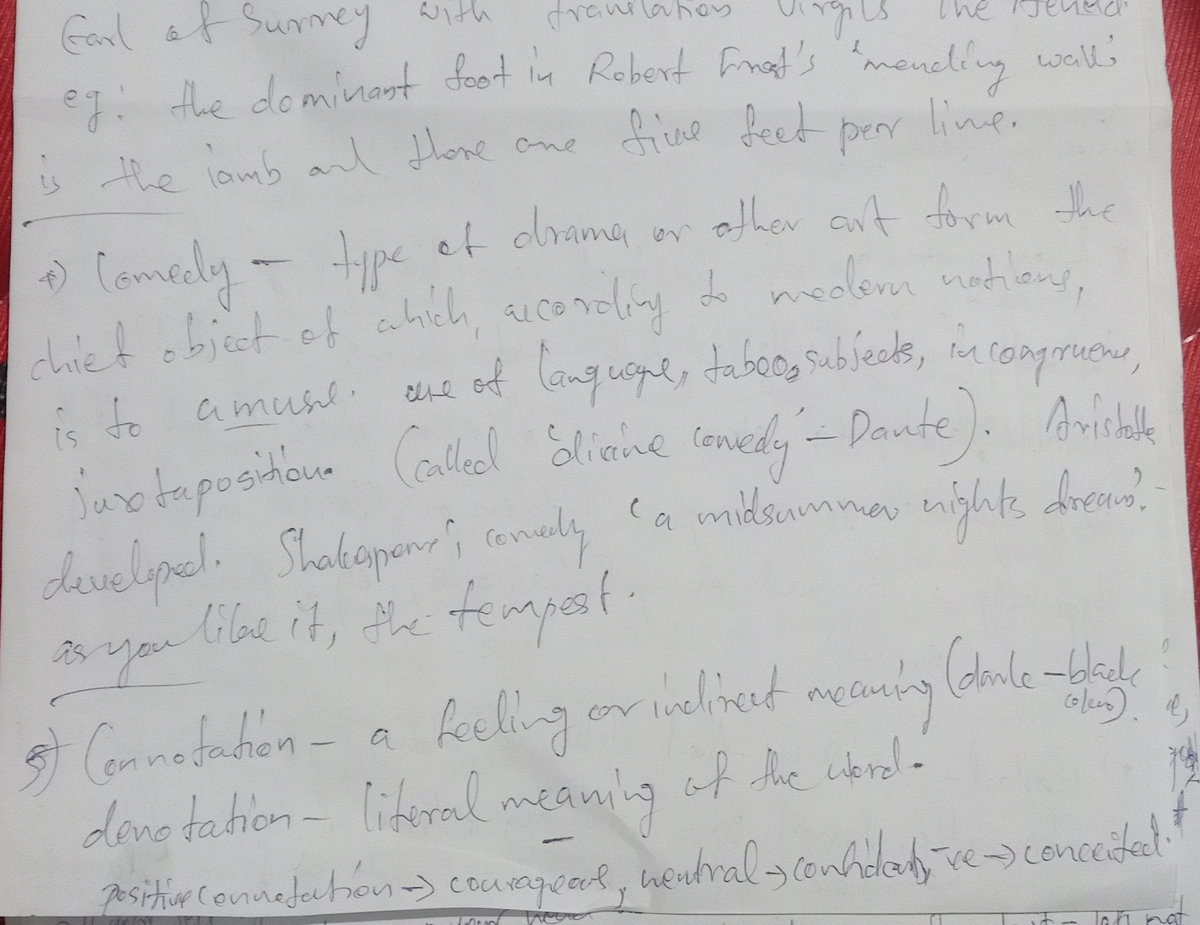 Earl of Surrey with translation Virgil's the Aeneid.
eg: the dominant foot in Robert Frost's 'mending wall'
is the iamb and there are five feet per line.
4) Comedy - type of drama or other art form the
chief object of which, according to modern notions,
is to amuse. use of language, taboo, subjects, incongruence,
juxtaposition. (called 'divine comedy' - Dante). Aristotle
developed. Shakespeare's comedy 'a midsummer nights dream'. -
as you like it, the tempest.
5) Connotation - a feeling or indirect meaning (dark - black
colour).
denotation - literal meaning of the word.
positive connotation → courageous, neutral → confident, -ve → conceited.